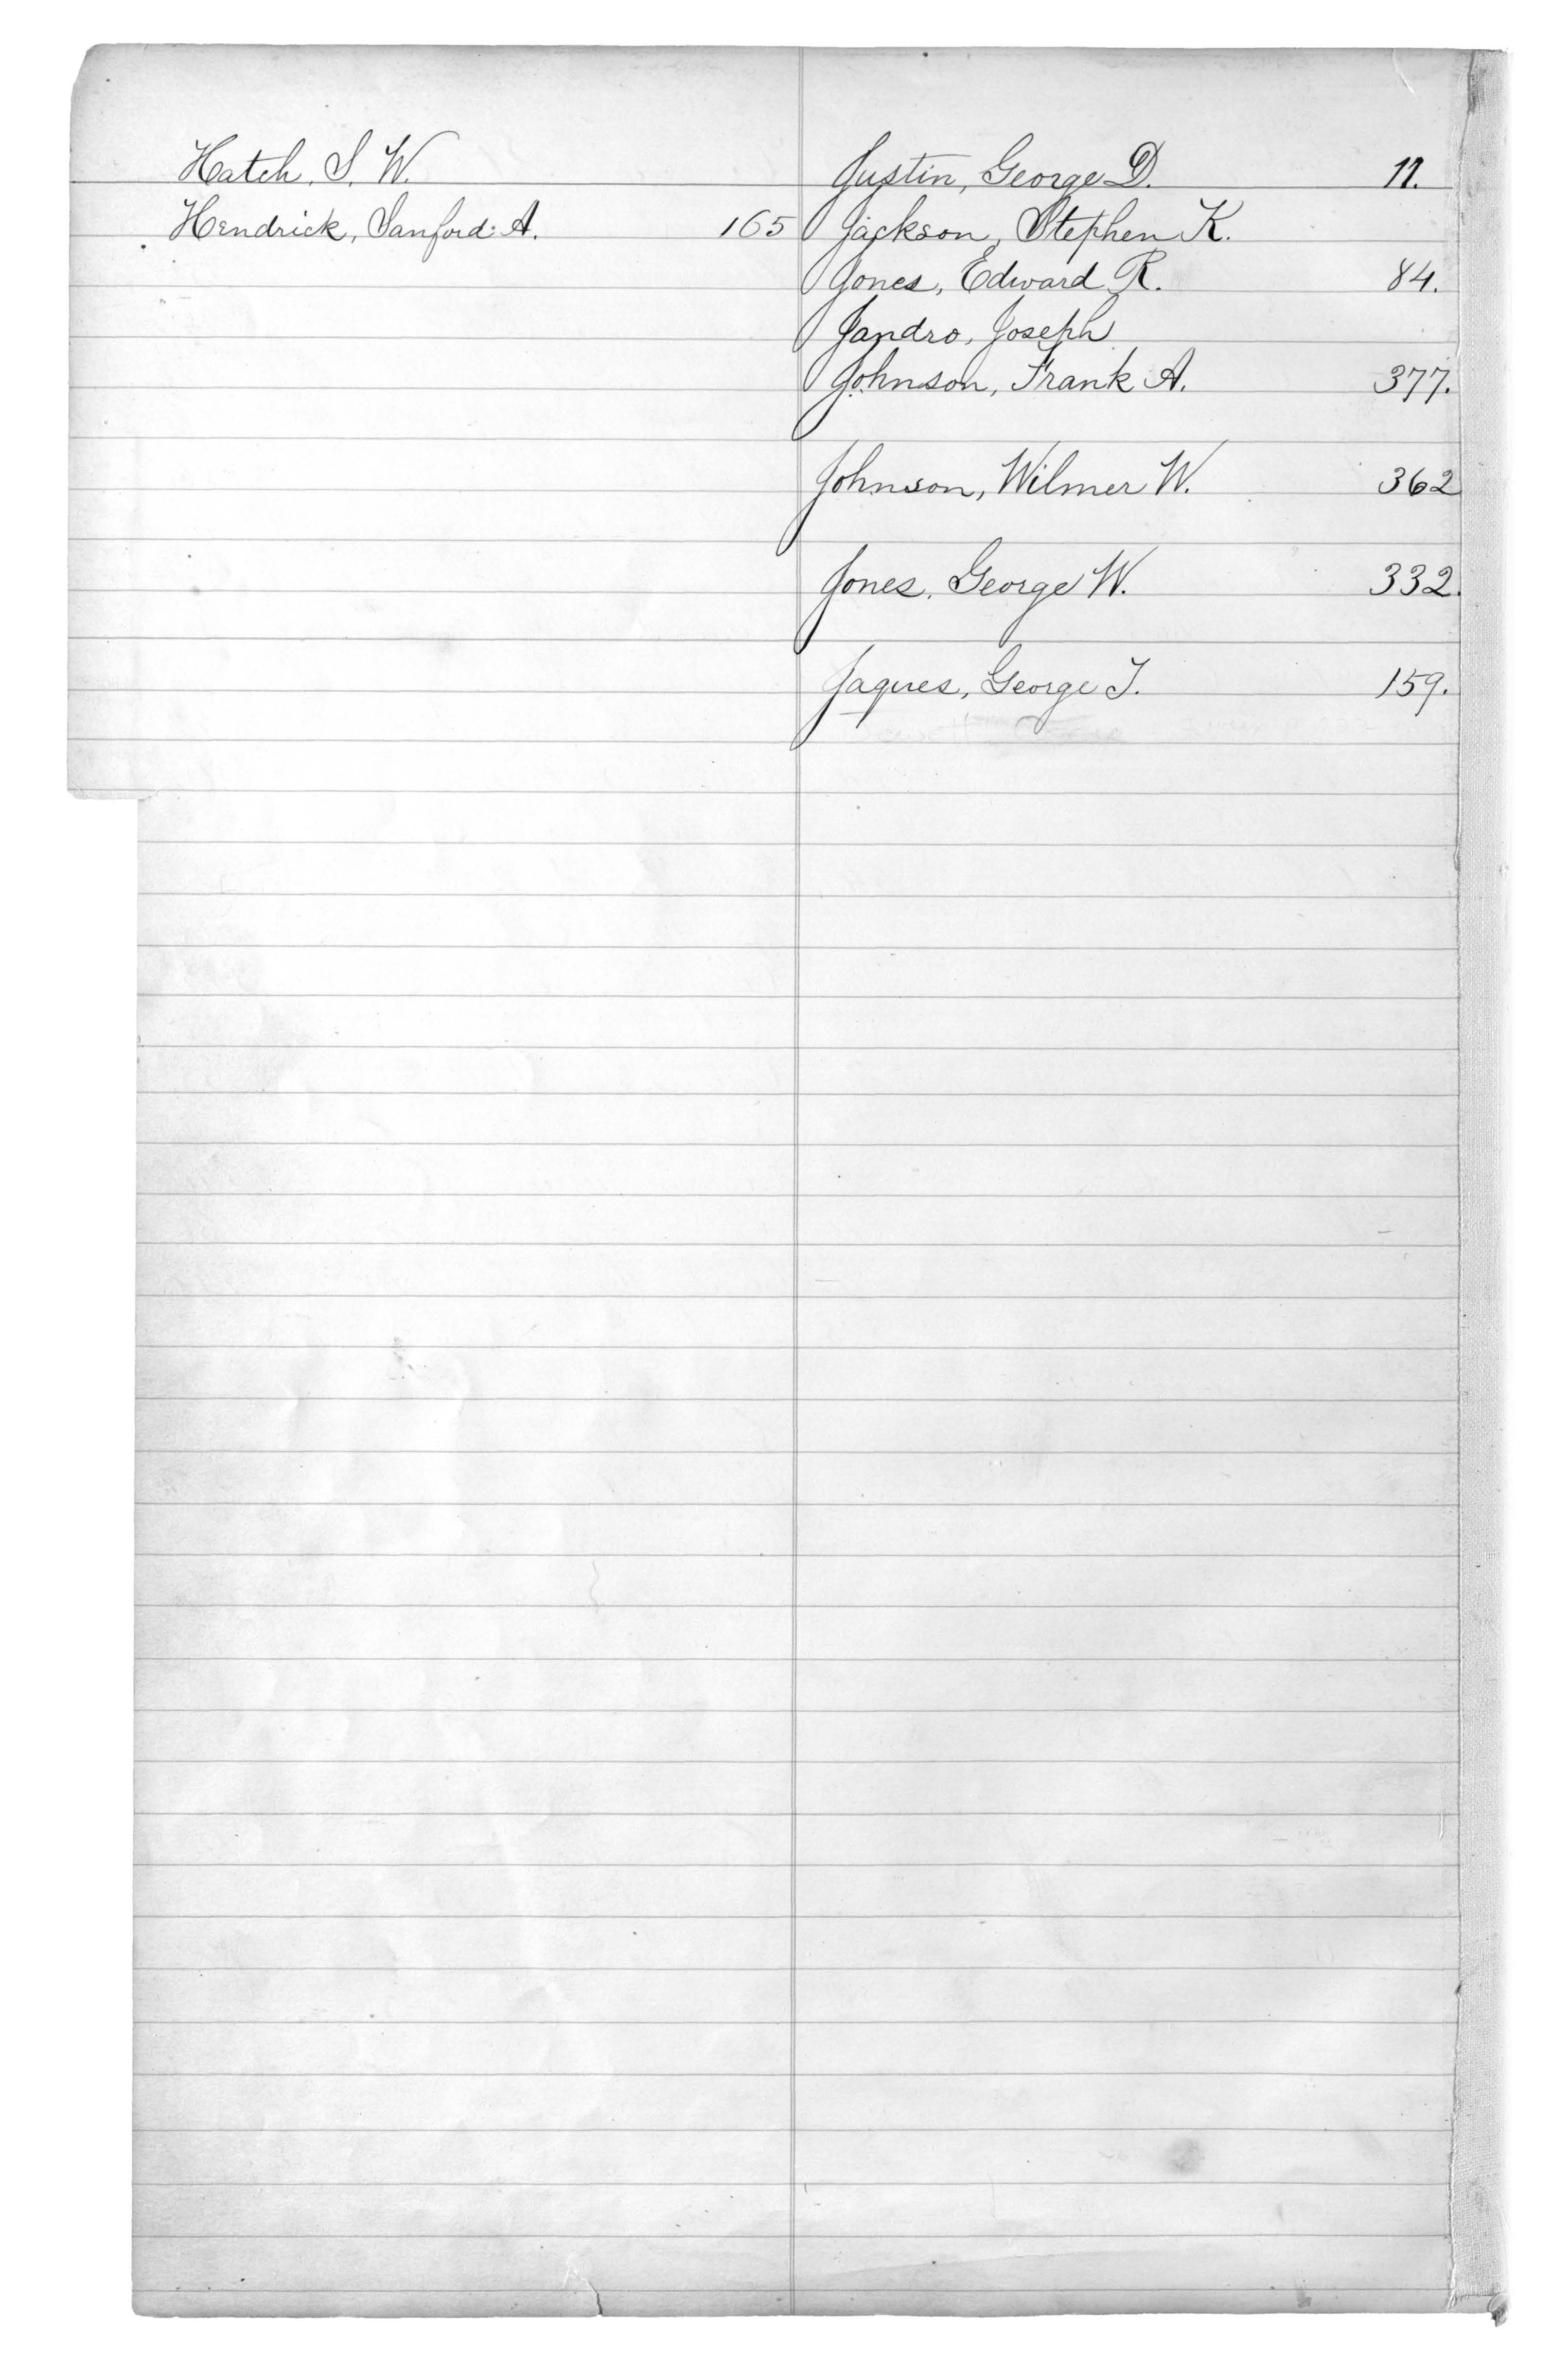 Hatch, S. W.
Hendrick, Sanford A. 165
Justin, George D. 11.
Jackson, Stephen K.
Jones, Edward R. 84.
Jandro, Joseph
Johnson, Frank A. 377.
Johnson, Wilmer W. 362
Jones, George W. 332.
Jaques, George T. 159.